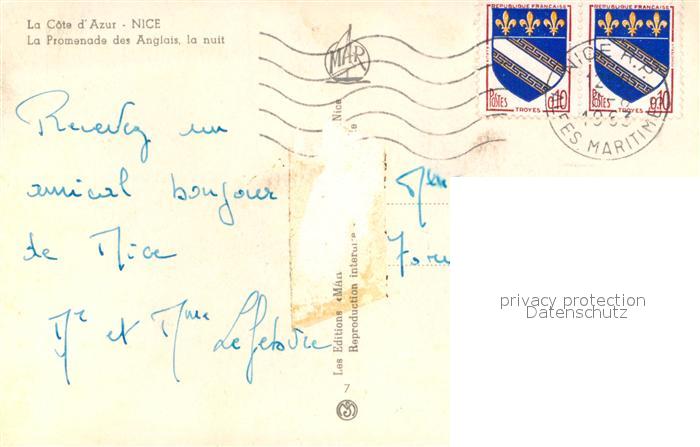 La Côte d'Azur - NICE
La Promenade des Anglais, la nuit
MAR
REPUBLIQUE FRANÇAISE
POSTES
0,10
TROYES
REPUBLIQUE FRANÇAISE
POSTES
0,10
TROYES
NICE R.P.
MARITIMES
Recevez un
amical bonjour
de Nice
Mr et Mme Lefebvre
Nice
Les Editions «MAR
Reproduction interdite
7
privacy protection
Datenschutz